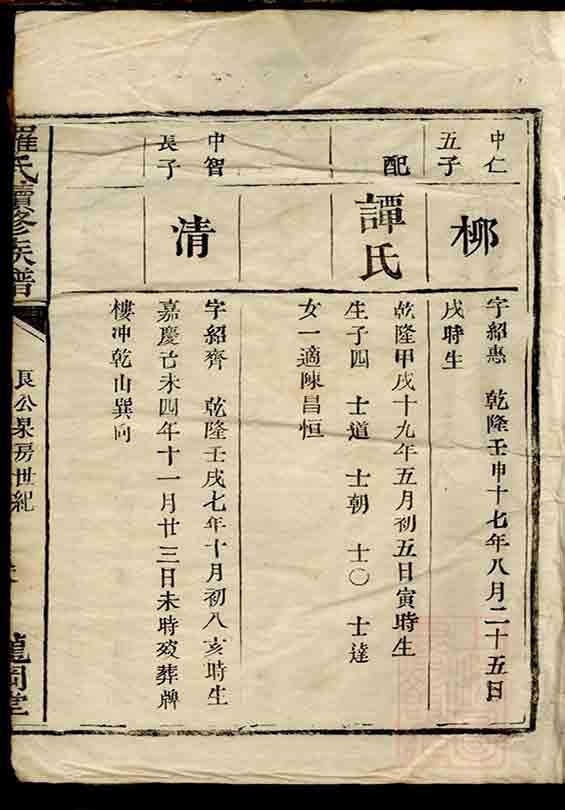 中仁
五子
柳
字紹惠　乾隆壬申十七年八月二十五日
戌時生
配
譚氏
乾隆甲戌十九年五月初五日寅時生
生子四　士道　士朝　士〇　士達
女一適陳昌恒
中智
長子
清
字紹齊　乾隆壬戌七年十月初八亥時生
嘉慶己未四年十一月廿三日未時歿葬牌
樓冲乾山巽向
羅氏續修族譜
良公杲房世紀